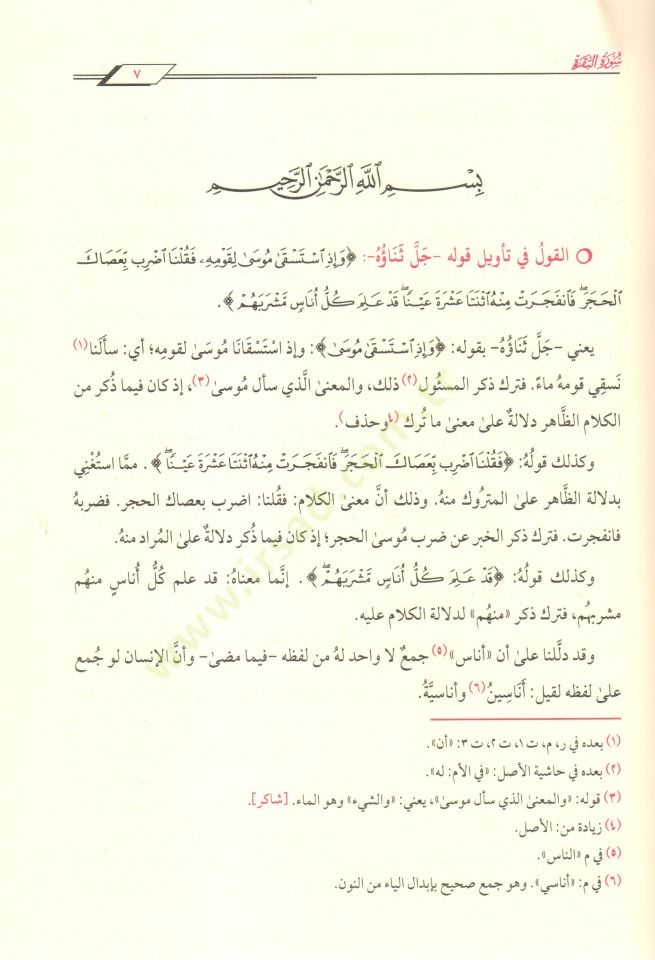 سُورَةُ البَقَرَةِ
٧
بِسْمِ ٱللَّهِ ٱلرَّحْمَٰنِ ٱلرَّحِيمِ
القولُ في تأويل قوله -جَلَّ ثَنَاؤُهُ-: ﴿وَإِذِ ٱسْتَسْقَىٰ مُوسَىٰ لِقَوْمِهِۦ فَقُلْنَا ٱضْرِب بِّعَصَاكَ
ٱلْحَجَرَۖ فَٱنفَجَرَتْ مِنْهُ ٱثْنَتَا عَشْرَةَ عَيْنًاۖ قَدْ عَلِمَ كُلُّ أُنَاسٍ مَّشْرَبَهُمْ﴾.
يعني -جَلَّ ثَنَاؤُهُ- بقوله: ﴿وَإِذِ ٱسْتَسْقَىٰ مُوسَىٰ﴾: وإذ اسْتَسْقَانَا مُوسَىٰ لقومه؛ أي: سألَنا(١)
نَسقِي قومهُ ماءً. فترك ذكر المسئُول(٢) ذلك، والمعنىٰ الَّذي سأل مُوسىٰ(٣)، إذ كان فيما ذُكر من
الكلام الظَّاهر دلالةٌ علىٰ معنىٰ ما تُرك (٤وحذف).
وكذلك قولُهُ: ﴿فَقُلْنَا ٱضْرِب بِّعَصَاكَ ٱلْحَجَرَۖ فَٱنفَجَرَتْ مِنْهُ ٱثْنَتَا عَشْرَةَ عَيْنًاۖ﴾. ممَّا استُغْنِي
بدلالة الظَّاهر علىٰ المتروُك منهُ. وذلك أنَّ معنىٰ الكلام: فقُلنا: اضرب بعصاك الحجر. فضربهُ
فانفجرت. فترك ذكر الخبر عن ضرب مُوسىٰ الحجر؛ إذ كان فيما ذُكر دلالةٌ علىٰ المُراد منهُ.
وكذلك قولُهُ: ﴿قَدْ عَلِمَ كُلُّ أُنَاسٍ مَّشْرَبَهُمْۖ﴾. إنَّما معناهُ: قد علم كُلُّ أُناسٍ منهُم
مشربهُم، فترك ذكر «منهُم» لدلالة الكلام عليه.
وقد دلَّلنا علىٰ أن «أناس»(٥) جمعٌ لا واحد لهُ من لفظه -فيما مضىٰ- وأنَّ الإنسان لو جُمع
علىٰ لفظه لقيل: أَنَاسِينُ(٦) وأناسيَّةُ.
(١) بعده في ر، م، ت ١، ت ٢، ت ٣: «أن».
(٢) بعده في حاشية الأصل: «في الأم: له».
(٣) قوله: «والمعنىٰ الذي سأل موسىٰ»، يعني: «والشيء» وهو الماء. [شاكر].
(٤) زيادة من: الأصل.
(٥) في م «الناس».
(٦) في م: «أناسي». وهو جمع صحيح بإبدال الياء من النون.
www.irsad.com.tr